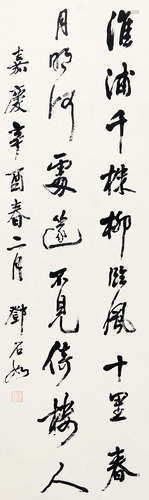 淮浦千株柳臨風十里春
月明何處篴不見倚樓人
嘉慶辛酉春二月 鄧石如